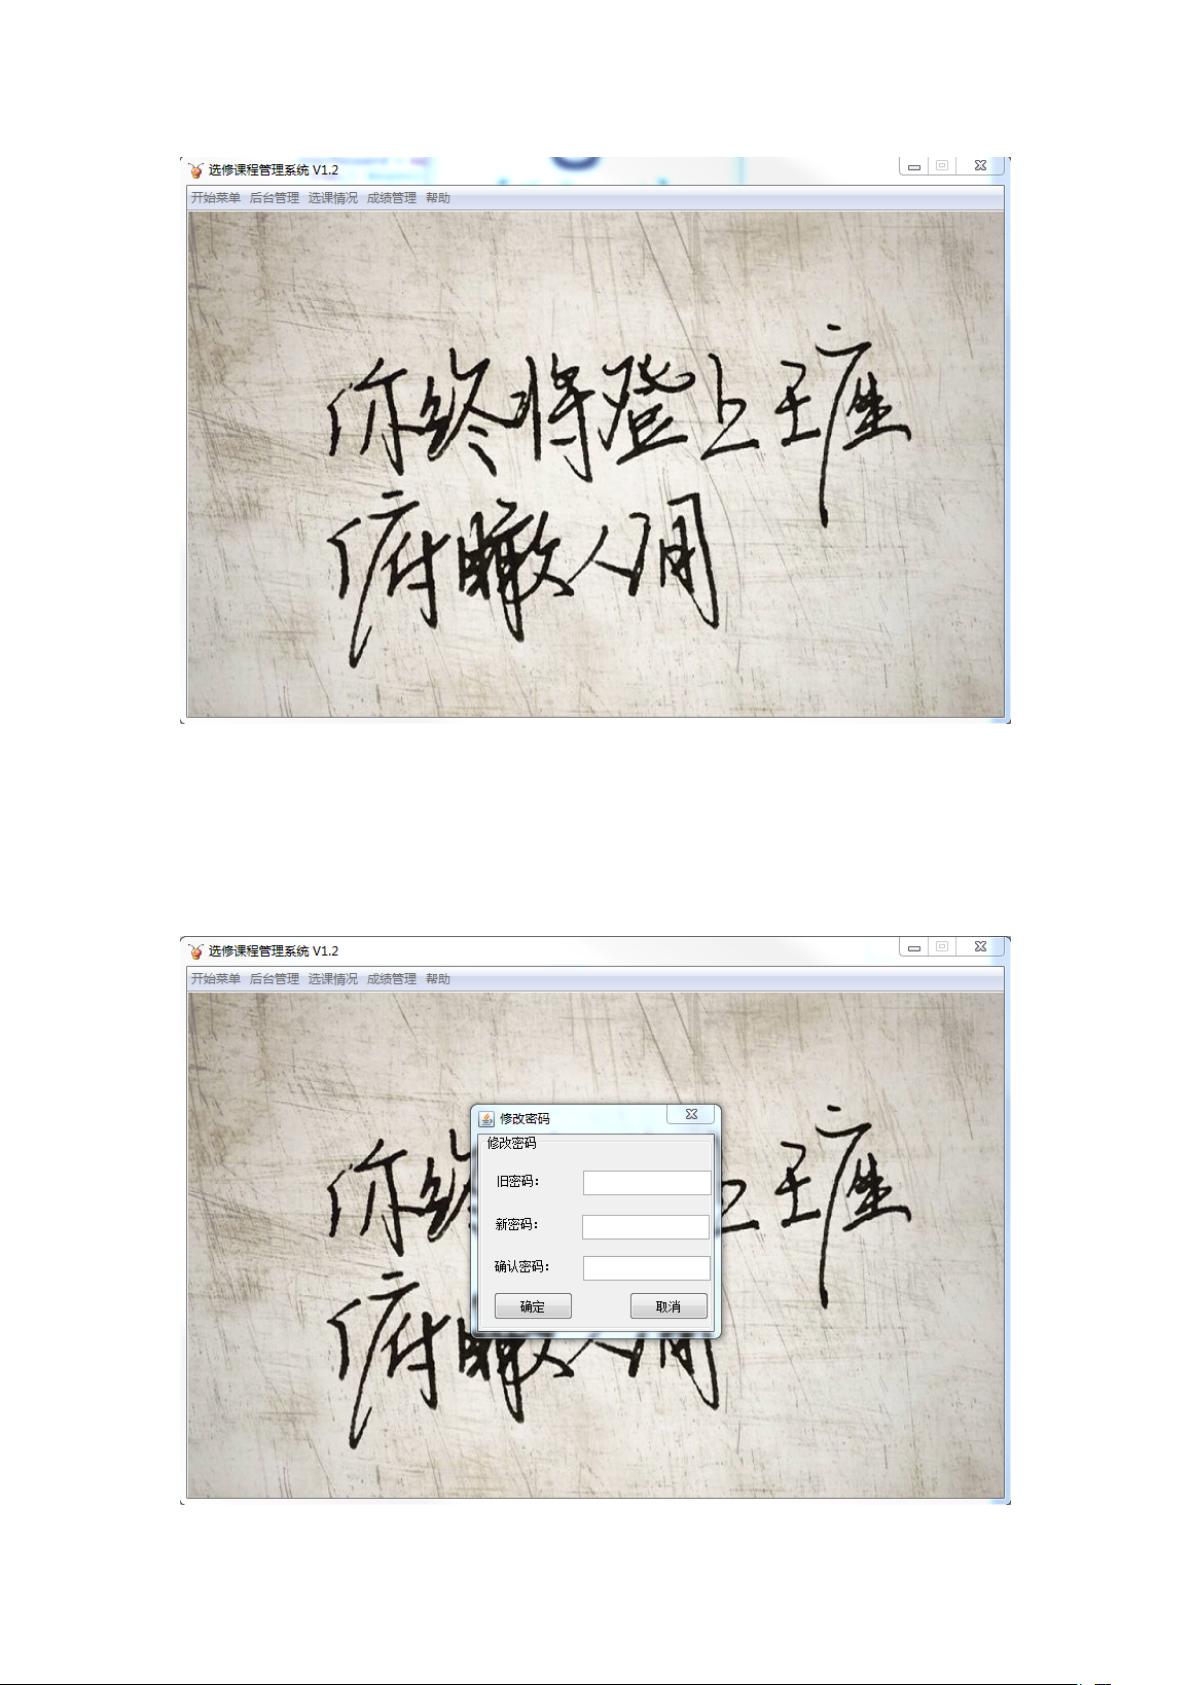 选修课程管理系统 V1.2
开始菜单 后台管理 选课情况 成绩管理 帮助
你终将登上王座
俯瞰人间
选修课程管理系统 V1.2
开始菜单 后台管理 选课情况 成绩管理 帮助
修改密码
修改密码
旧密码：
新密码：
确认密码：
确定 取消
你终 上王座
俯瞰人间